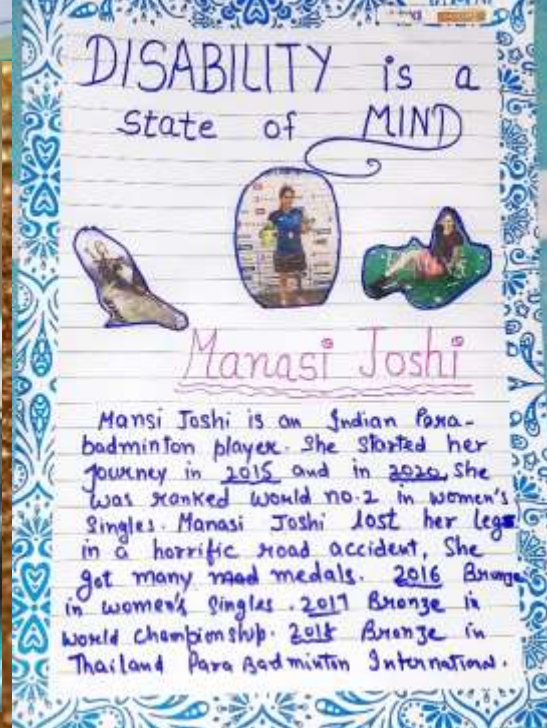 DISABILITY is a
state of MIND
Manasi Joshi
Mansi Joshi is an Indian Para-
badminton player. She started her
journey in 2015 and in 2020, She
was ranked world no.2 in women's
Singles. Manasi Joshi lost her legs
in a horrific road accident, She
got many mad medals. 2016 Bronze
in women's singles. 2017 Bronze in
world championship. 2018 Bronze in
Thailand Para Badminton International.